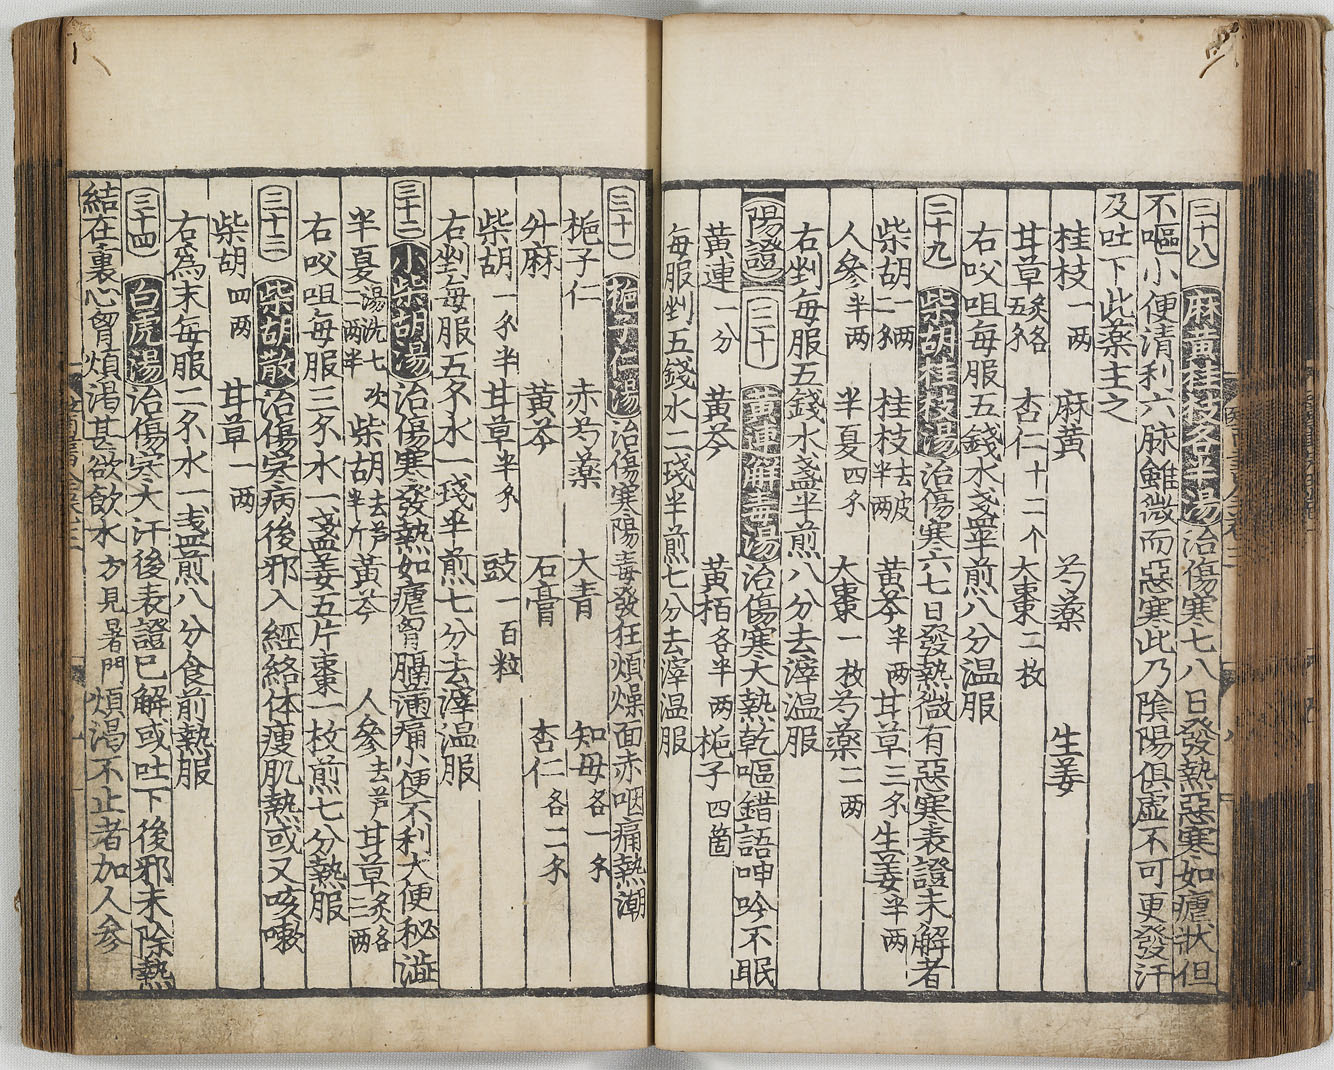 二十八 麻黄桂枝各半湯 治傷寒七八日發熱惡寒如瘧狀但
不嘔小便清利六脉雖微而惡寒此乃陰陽俱虛不可更發汗
及吐下此薬主之
桂枝一两 麻黄 芍薬 生姜
甘草炙各五分 杏仁十二个 大棗二枚
右㕮咀每服五錢水盞半煎八分温服
二十九 柴胡桂枝湯 治傷寒六七日發熱微有惡寒表證未解者
柴胡一两二分 桂枝去皮半两 黄芩半两 甘草三分 生姜半两
人參半两 半夏四分 大棗一枚 芍薬二两
右剉每服五錢水盞半煎八分去滓温服
陽證 三十 黄連解毒湯 治傷寒大熱乾嘔錯語呻吟不眠
黄連一分 黄芩 黄栢各半两 梔子四箇
每服剉五錢水一琖半煎七分去滓温服
三十一 梔子仁湯 治傷寒陽毒發狂煩燥面赤咽痛熱潮
梔子仁 赤芍薬 大青 知母各一分
升麻 黄芩 石膏 杏仁各二分
柴胡一分半 甘草半分 豉一百粒
右剉每服五分水一琖半煎七分去滓温服
三十二 小柴胡湯 治傷寒發熱如瘧胷膈滿痛小便不利大便秘澁
半夏湯洗七次一两半 柴胡去芦半斤 黄芩 人參去芦 甘草炙各三两
右㕮咀每服三分水一盞姜五片棗一枚煎七分熱服
三十三 柴胡散 治傷寒病後邪入經絡体瘦肌熱或又咳嗽
柴胡四两 甘草一两
右為末每服二分水一盞煎八分食前熱服
三十四 白虎湯 治傷寒大汗後表證已解或吐下後邪未除熱
結在裏心胷煩渴甚欲飲水方見暑門煩渴不止者加人參